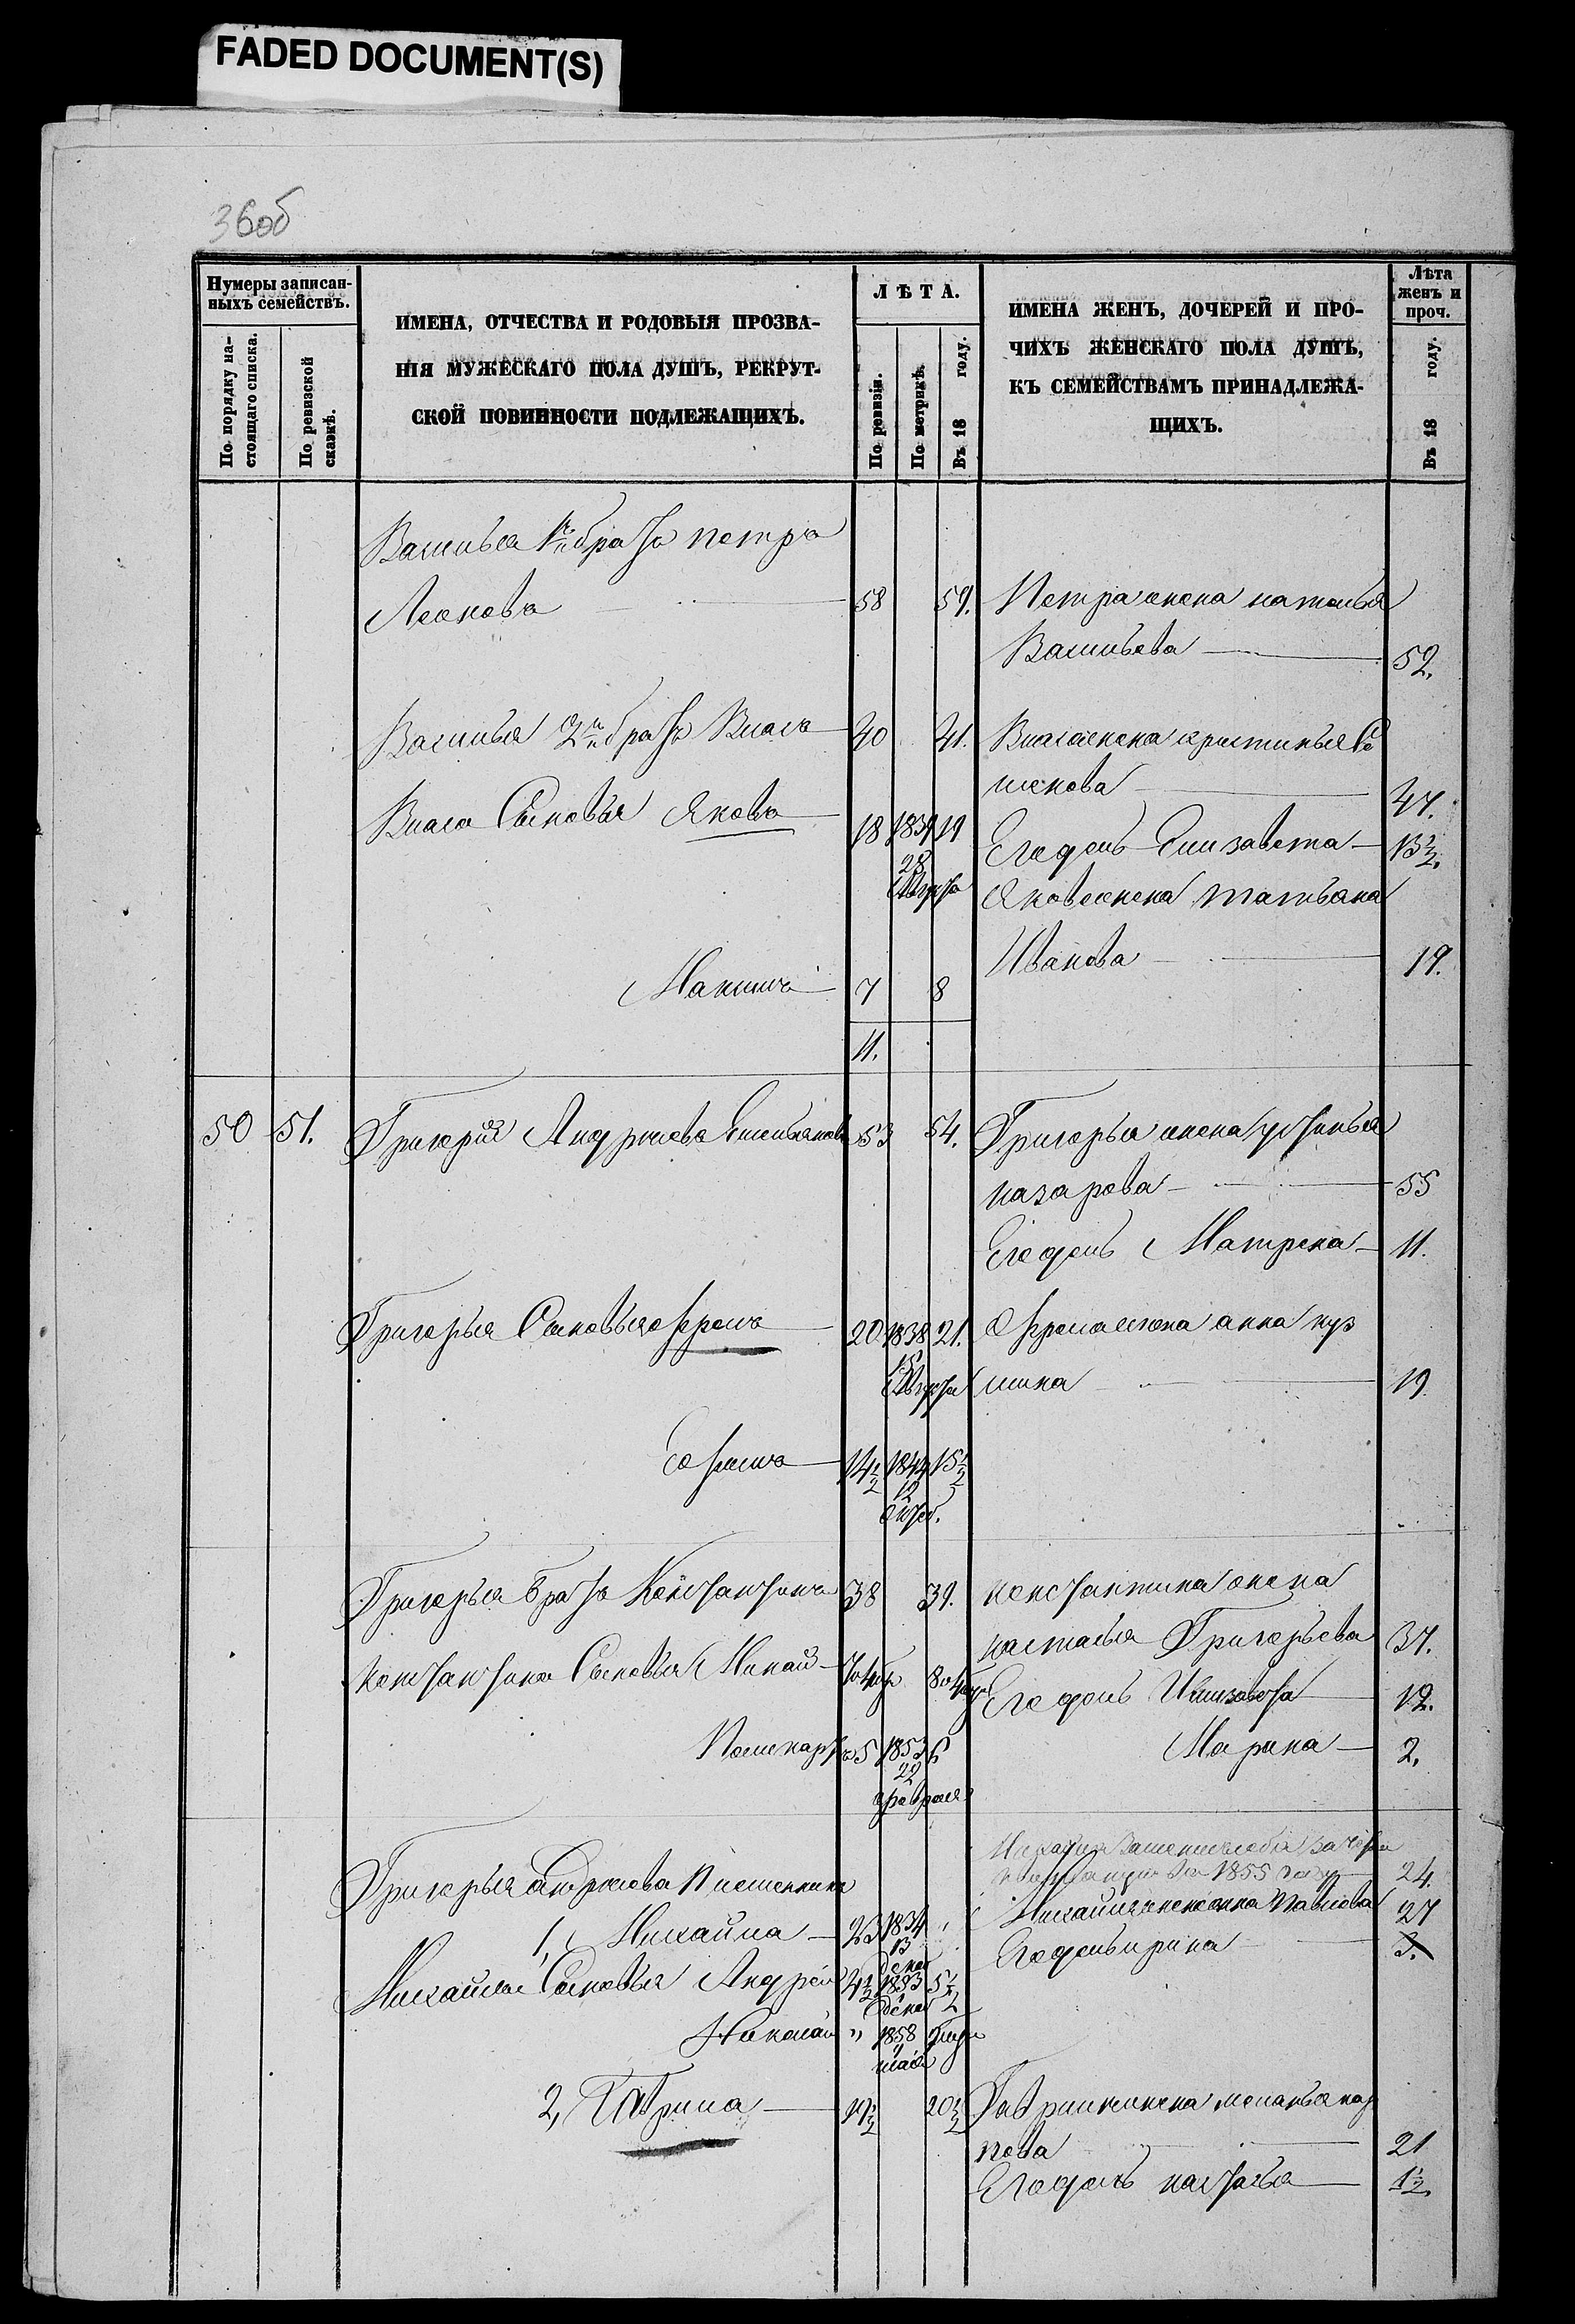 FADED DOCUMENT(S)
36об
Нумеры записан-
ныхъ семействъ.
По порядку на-
стоящаго списка.
По ревизской
сказкѣ.
ИМЕНА, ОТЧЕСТВА И РОДОВЫЯ ПРОЗВА-
НІЯ МУЖЕСКАГО ПОЛА ДУШЪ, РЕКРУТ-
СКОЙ ПОВИННОСТИ ПОДЛЕЖАЩИХЪ.
ЛѢТА.
По ревизіи.
По метрикѣ.
Въ 18 году.
ИМЕНА ЖЕНЪ, ДОЧЕРЕЙ И ПРО-
ЧИХЪ ЖЕНСКАГО ПОЛА ДУШЪ,
КЪ СЕМЕЙСТВАМЪ ПРИНАДЛЕЖА-
ЩИХЪ.
Лѣта
женъ и
проч.
Въ 18 году.
Василья 1й братъ петръ
Леонова 58 59. Петра жена наталья
Васильева 52.
Василья 2й братъ Власъ 40 41. Власа жена кристинья
47.
Власа Сыновья Яковъ 18 1839 19 Его дочь Елизавета 13½.
28
Августа Якова жена татьяна
Иванова 19.
Макимъ 7 8
11.
50 51. Григорий Андреевъ Емельяновъ 53 54. Григорья жена устинья
назарова 55
Его дочь Матрена 11.
Григорья Сыновья ефремъ 20 1838 21. ефрема жена анна куз
15
Августа мина 19
Ефимъ 14½ 1844 15½
12
октяб.
Григорья братъ Констянтинъ 38 39. константина жена
настасья Григорьева 37.
Констянтина Сыновья Минай Его дочь Илизавета 12.
5 1853 6 Марина 2.
22
февраля
1855 году 24.
Григорья андреева Племянники
1, Михайла 23 1834 Михайлы жена анна Павлова 27
13
Его дочь ирина 3.
Михайлы Сыновья Андрей 4½ 1853 5½
Николай " 1858
9
мая
2, Гаврила 19½ 20½ Гаврилы жена меланья кар
пова 21
Его дочь настасья 1½.